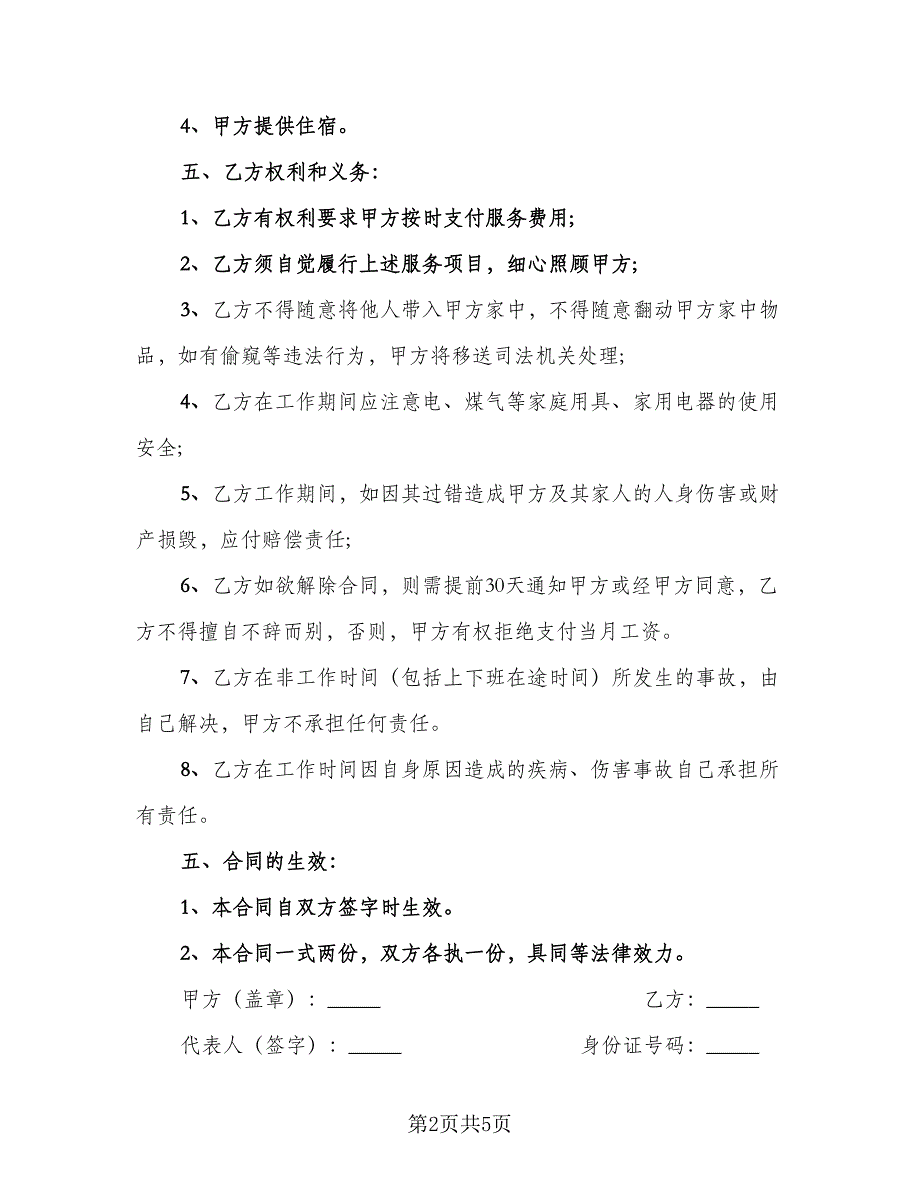 4、甲方提供住宿。
五、乙方权利和义务：
1、乙方有权利要求甲方按时支付服务费用;
2、乙方须自觉履行上述服务项目，细心照顾甲方;
3、乙方不得随意将他人带入甲方家中，不得随意翻动甲方家中物
品，如有偷窥等违法行为，甲方将移送司法机关处理;
4、乙方在工作期间应注意电、煤气等家庭用具、家用电器的使用
安全;
5、乙方工作期间，如因其过错造成甲方及其家人的人身伤害或财
产损毁，应付赔偿责任;
6、乙方如欲解除合同，则需提前30天通知甲方或经甲方同意，乙
方不得擅自不辞而别，否则，甲方有权拒绝支付当月工资。
7、乙方在非工作时间（包括上下班在途时间）所发生的事故，由
自己解决，甲方不承担任何责任。
8、乙方在工作时间因自身原因造成的疾病、伤害事故自己承担所
有责任。
五、合同的生效：
1、本合同自双方签字时生效。
2、本合同一式两份，双方各执一份，具同等法律效力。
甲方（盖章）：_____ 乙方：_____
代表人（签字）：_____ 身份证号码：_____
第2页共5页